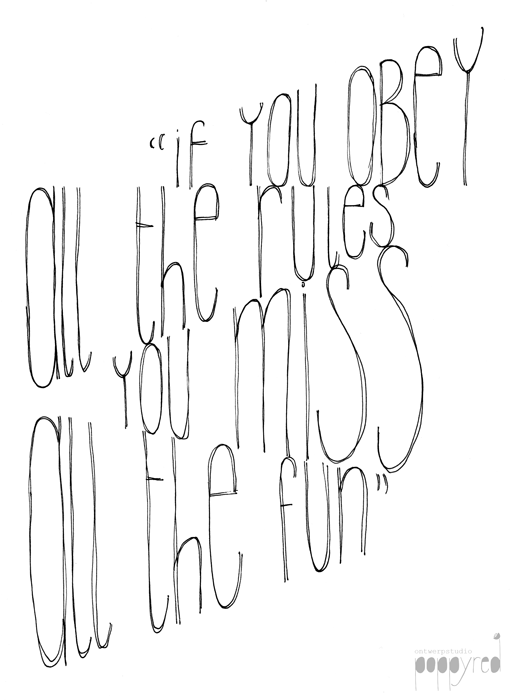 “if YOU OBEY
all the rules
YOU miss
all the fun”
ontwerpstudio
poppyred